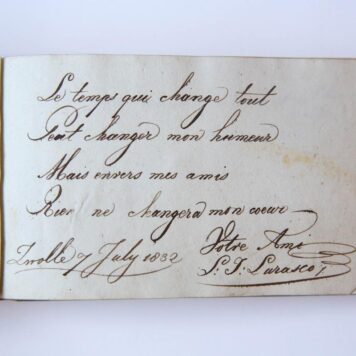 Le temps qui change tout
Peut changer mon humeur
Mais envers mes amis
Rien ne changera mon coeur
Zwolle 7 July 1832
Votre Ami
S. J. Surasco